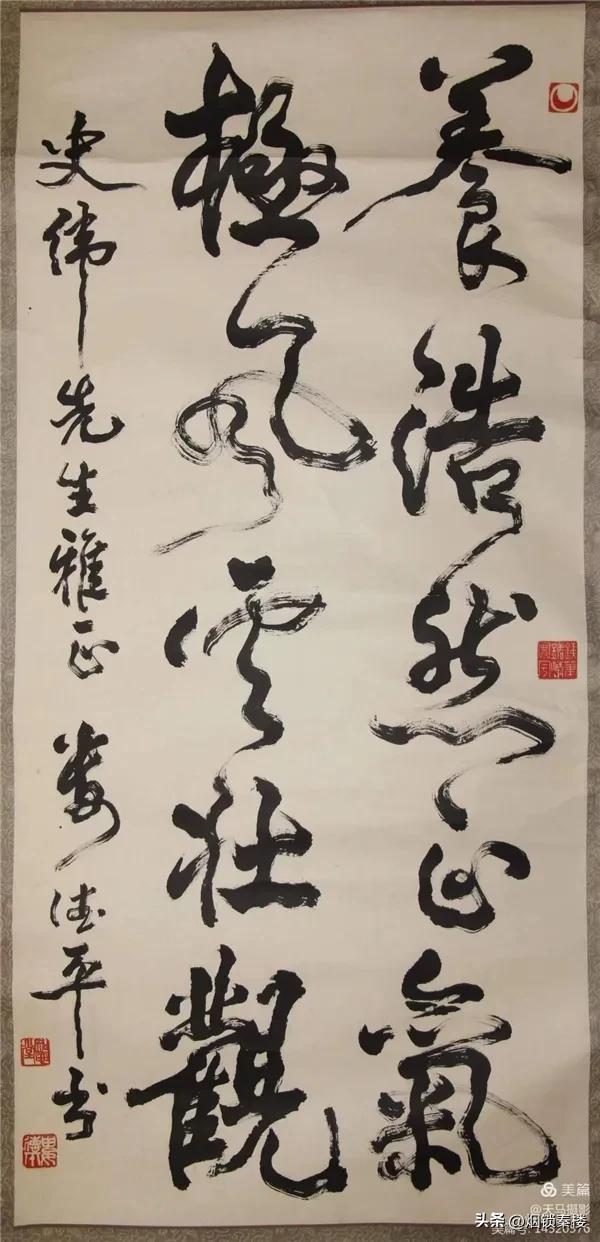 養浩然正氣
極風雲壯觀
史緯先生雅正 婁德平书
美篇
@天马摄影
美篇号: 14320576
头条 @烟锁秦楼